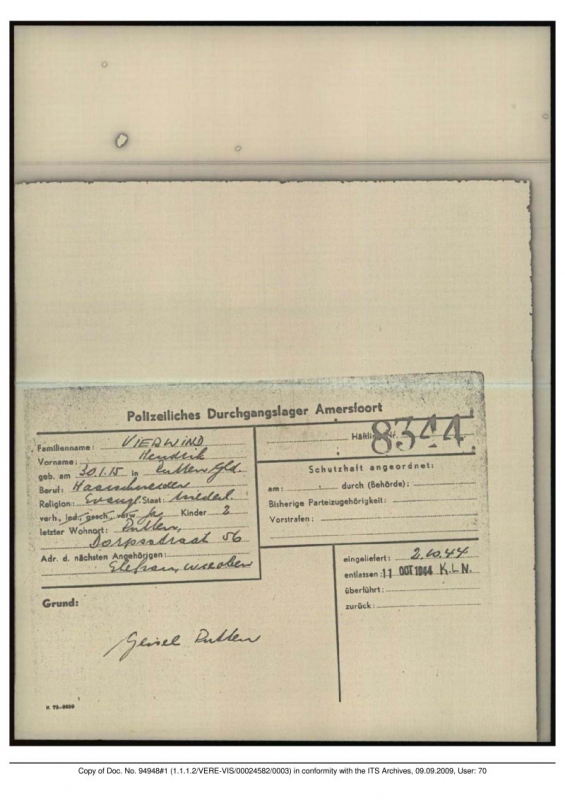 Polizeiliches Durchgangslager Amersfoort
Familienname: VIERWIND
Vorname: Hendrik
geb. am 30.1.15 in Putten Gld.
Beruf: Haarschneider
Religion: Evangl. Staat: Niederl.
verh., led., gesch., verw. Kinder 2
letzter Wohnort: Putten,
Dorpsstraat 56
Adr. d. nächsten Angehörigen:
Ehefrau, w. w. oben
Grund:
Geisel Putten
K 72-8659
Häftling Nr. 8344
Schutzhaft angeordnet:
am: durch (Behörde):
Bisherige Parteizugehörigkeit:
Vorstrafen:
eingeliefert: 2.10.44
entlassen: 11 OCT 1944 K.L.N.
überführt:
zurück:
Copy of Doc. No. 94948#1 (1.1.1.2/VERE-VIS/00024582/0003) in conformity with the ITS Archives, 09.09.2009, User: 70